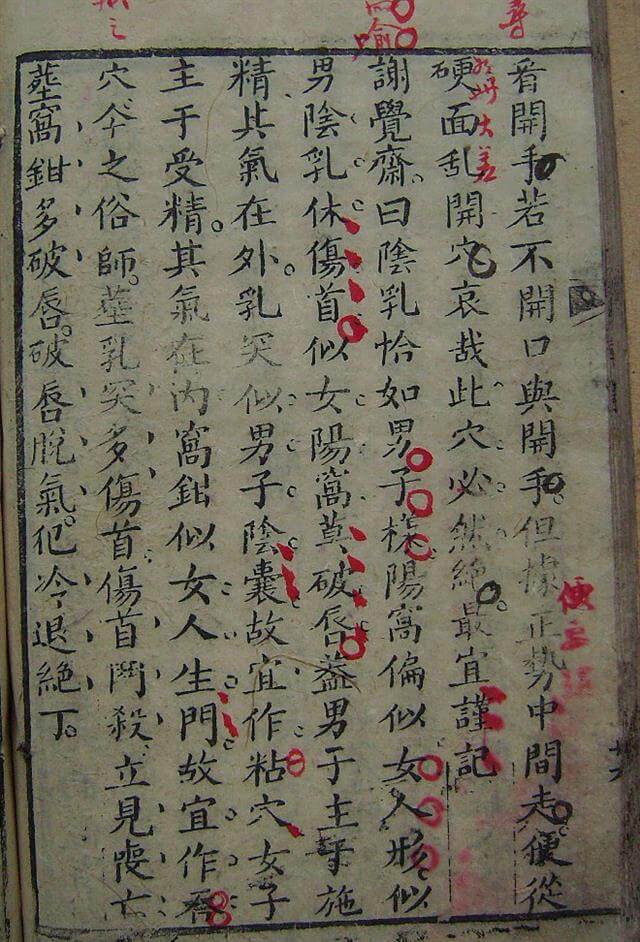 看開手若不開口與開手但據正勢中間走便從
硬面乱開穴哀哉此穴必然絶最宜謹記
謝覺齋曰陰乳恰如男子樣陽窩偏似女人形似
男陰乳休傷首似女陽窩莫破唇葢男于主于施
精其氣在外乳突似男子陰囊故宜作粘穴女子
主于受精其氣在内窩鉗似女人生門故宜作
穴今之俗師塟乳突多傷首傷首鬥殺立見喪亡
塟窩鉗多破唇破唇脫氣犯冷退絶丁